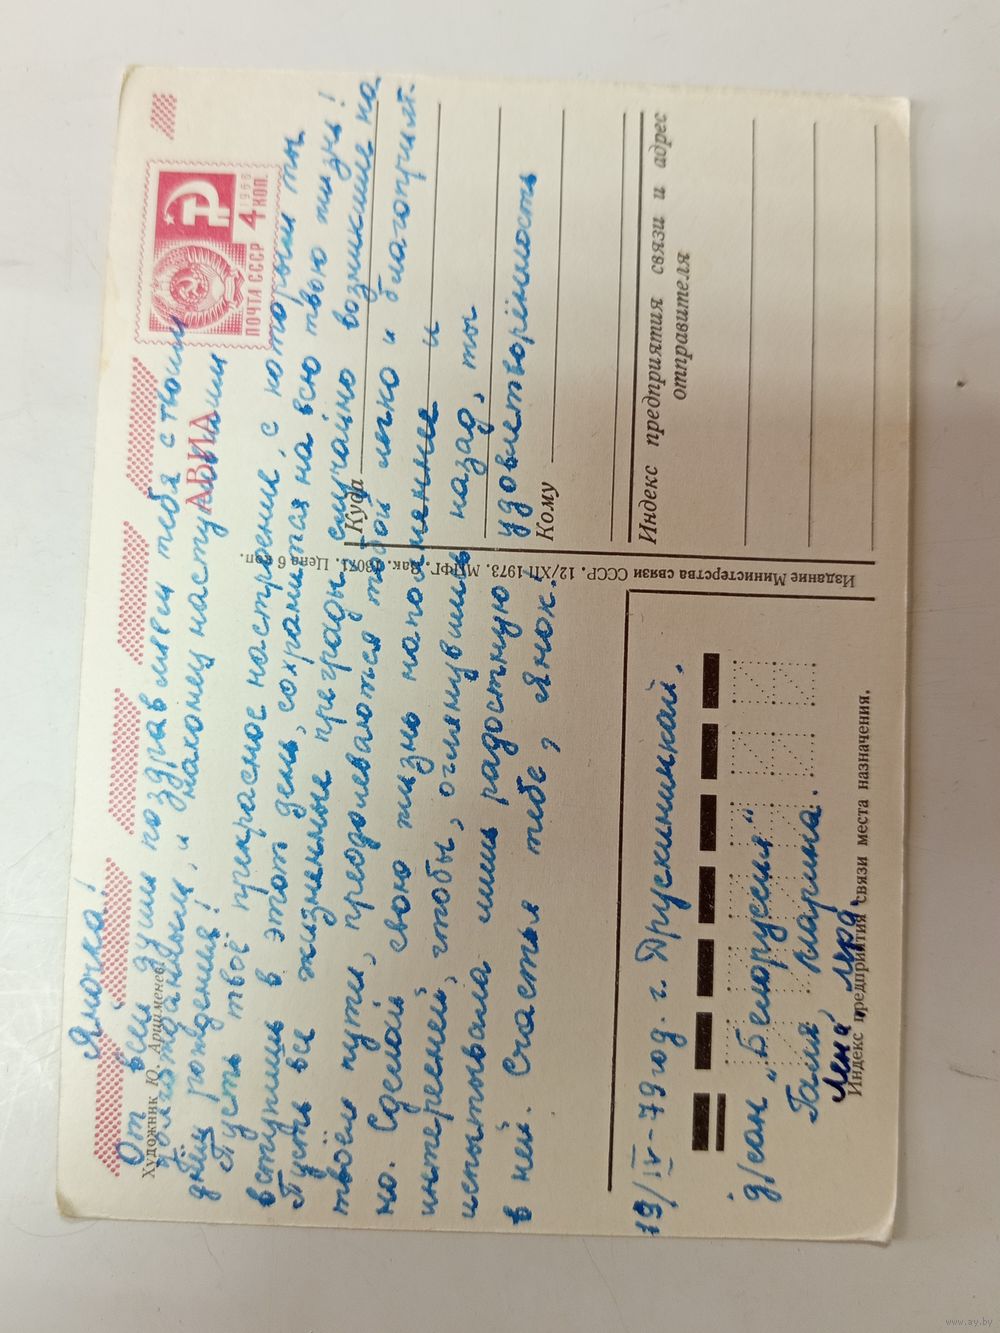 Яночка!
Художник Ю. Арцименев.
От всей души поздравляем тебя с твоим
долгожданным, и наконец наступившим
днём рождения!
АВИА
ПОЧТА СССР 4 КОП.
1966
Пусть твоё прекрасное настроение, с которым ты
вступишь в этот день, сохранится на всю твою жизнь!
Пусть все жизненные преграды, случайно возникшие на
твоём пути, преодолеваются тобой легко и благоприят.
но. Сделай свою жизнь наполненнее и
интересней, чтобы, оглянувшись назад, ты
испытывала лишь радостную удовлетворённость
в ней. Счастья тебе, Янок!
Куда
Кому
Индекс предприятия связи и адрес
отправителя
Издание Министерства связи СССР. 12/XII 1973. МПФГ. Зак. 13071. Цена 6 коп.
19/IV-79 год. г. Друскининкай.
д/сан „Белоруссия"
Галя, Марина.
Лена, Лера.
Индекс предприятия связи места назначения.
www.ay.by